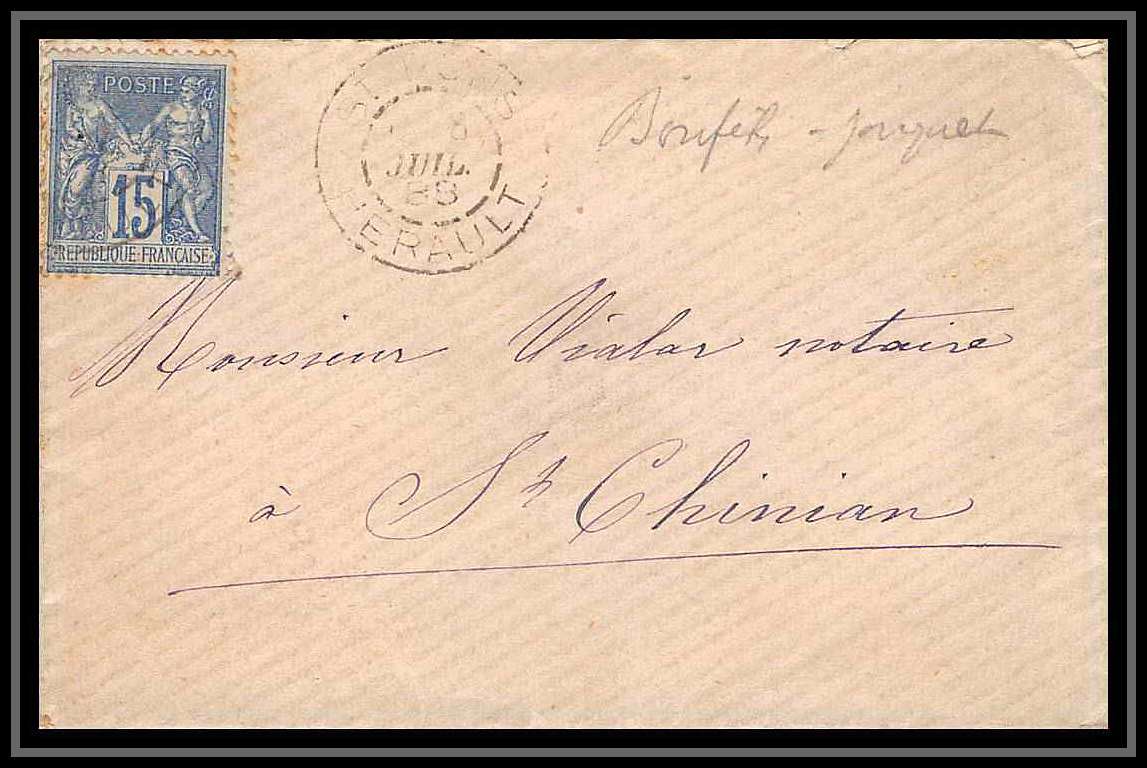 POSTE
15
REPUBLIQUE FRANÇAISE
ST
8
JUIL.
88
HERAULT
Monsieur Vialar notaire
à St Chinian